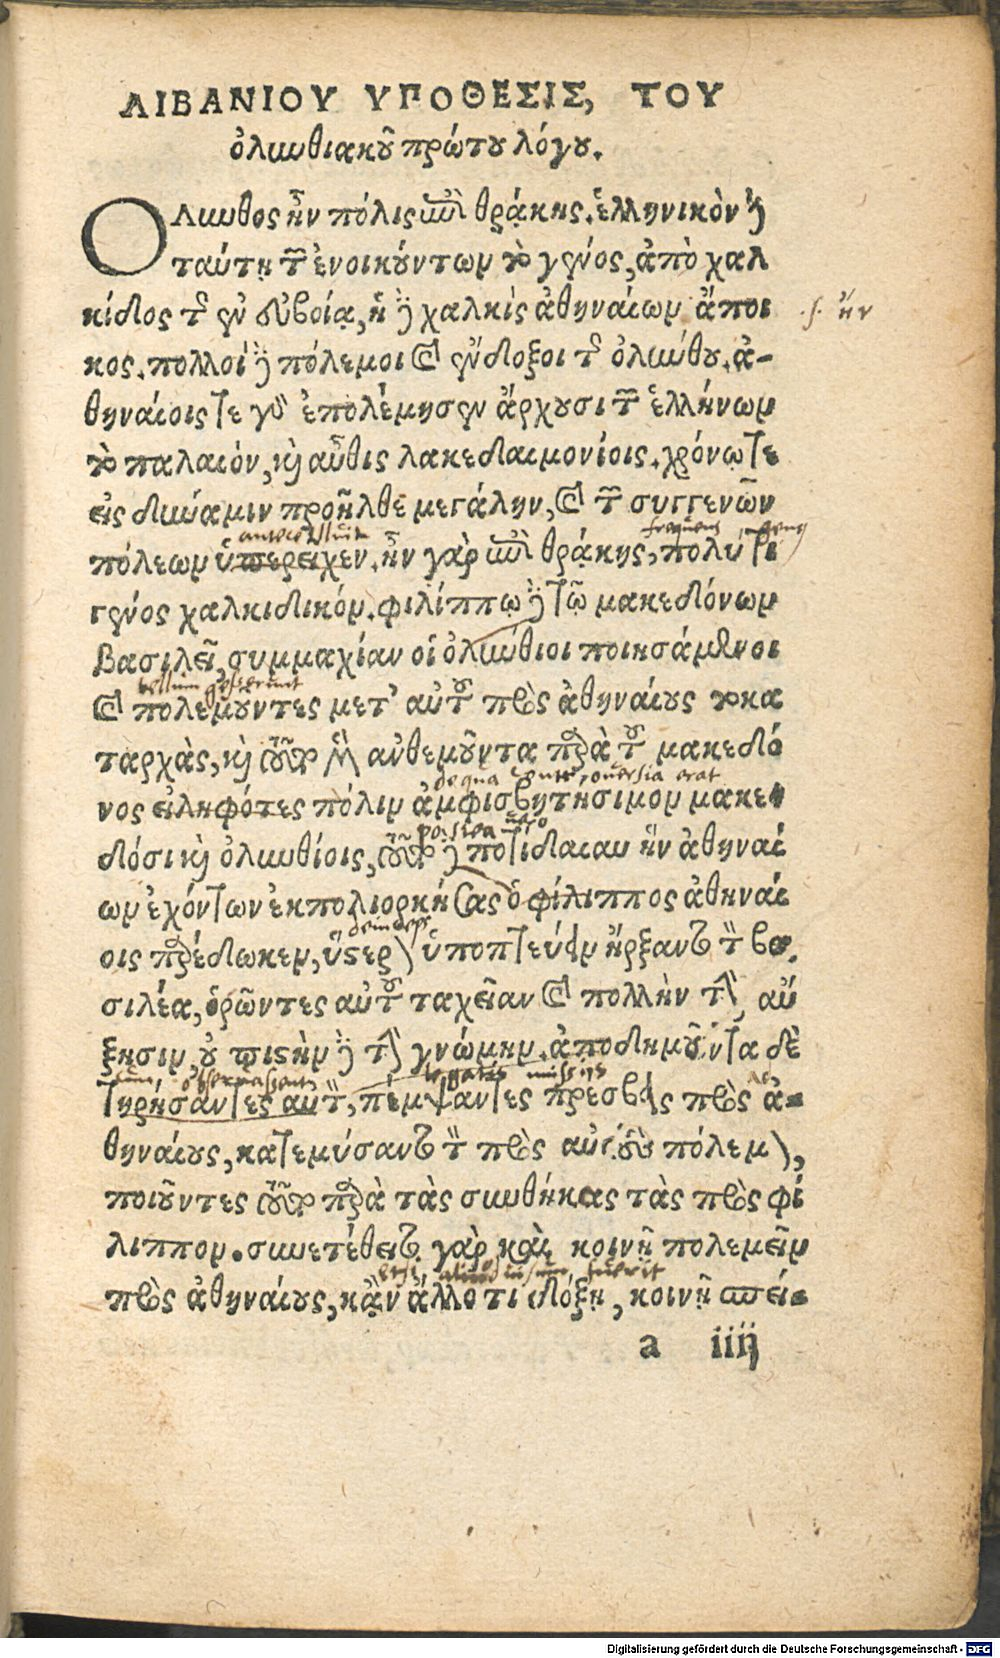 ΛΙΒΑΝΙΟΥ ΥΠΟΘΕΣΙΣ, ΤΟΥ
ὀλυνθιακοῦ πρώτου λόγου.
Ολυνθος ἦν πόλις ἐπὶ θρᾴκης. ἑλληνικὸν δὲ
ταύτῃ τῶν ἐνοικούντων τὸ γένος, ἀπὸ χαλ
κίδος τῆς ἐν εὐβοίᾳ, ἡ δὲ χαλκὶς ἀθηναίων ἄποι
·ſ· ἦν
κος. πολλοὶ δὲ πόλεμοι καὶ ἔνδοξοι τῆς ὀλύνθου. ἀ-
θηναίοις τε γὰρ ἐπολέμησαν ἄρχουσι τῶν ἑλλήνων
τὸ παλαιόν, καὶ αὖθις λακεδαιμονίοις. χρόνῳ τε
εἰς δύναμιν προῆλθε μεγάλην, καὶ τῶν συγγενῶν
πόλεων ὑπερεῖχεν. ἦν γὰρ ἐπὶ θρᾴκης, πολύ τι
γένος χαλκιδικόν. φιλίππῳ δὲ τῷ μακεδόνων
βασιλεῖ, συμμαχίαν οἱ ὀλύνθιοι ποιησάμενοι
bellum gesserunt
καὶ πολεμοῦντες μετ' αὐτοῦ πρὸς ἀθηναίους τὸ κα
ταρχὰς, καὶ τοῦτο μὲν ἀνθεμοῦντα παρὰ τοῦ μακεδό
νος εἰληφότες πόλιν ἀμφισβητήσιμον μακε
de qua controuersia erat
δόσι καὶ ὀλυνθίοις, τοῦτο δὲ ποτίδαιαν ἣν ἀθηναί
ων ἐχόντων ἐκπολιορκήσας ὁ φίλιππος ἀθηναί
οις παρέδωκεν, ὕστερον ὑποπτεύειν ἤρξαντο τὸν βα
σιλέα, ὁρῶντες αὐτοῦ ταχεῖαν καὶ πολλὴν τὴν αὔ
ξησιν, οὐ πιστὴν δὲ τὴν γνώμην. ἀποδημοῦντα δὲ
legatis missis
τηρήσαντες αὐτὸν, πέμψαντες πρέσβεις πρὸς ἀ-
θηναίους, κατελύσαντο τὸν πρὸς αὐτοὺς πόλεμον,
ποιοῦντες τοῦτο παρὰ τὰς συνθήκας τὰς πρὸς φί
λιππον. συνετέθειτο γὰρ καὶ κοινῇ πολεμεῖν
πρὸς ἀθηναίους, κἂν ἄλλο τι δόξῃ, κοινῇ σπεί-
a iiij
Digitalisierung gefördert durch die Deutsche Forschungsgemeinschaft - DFG